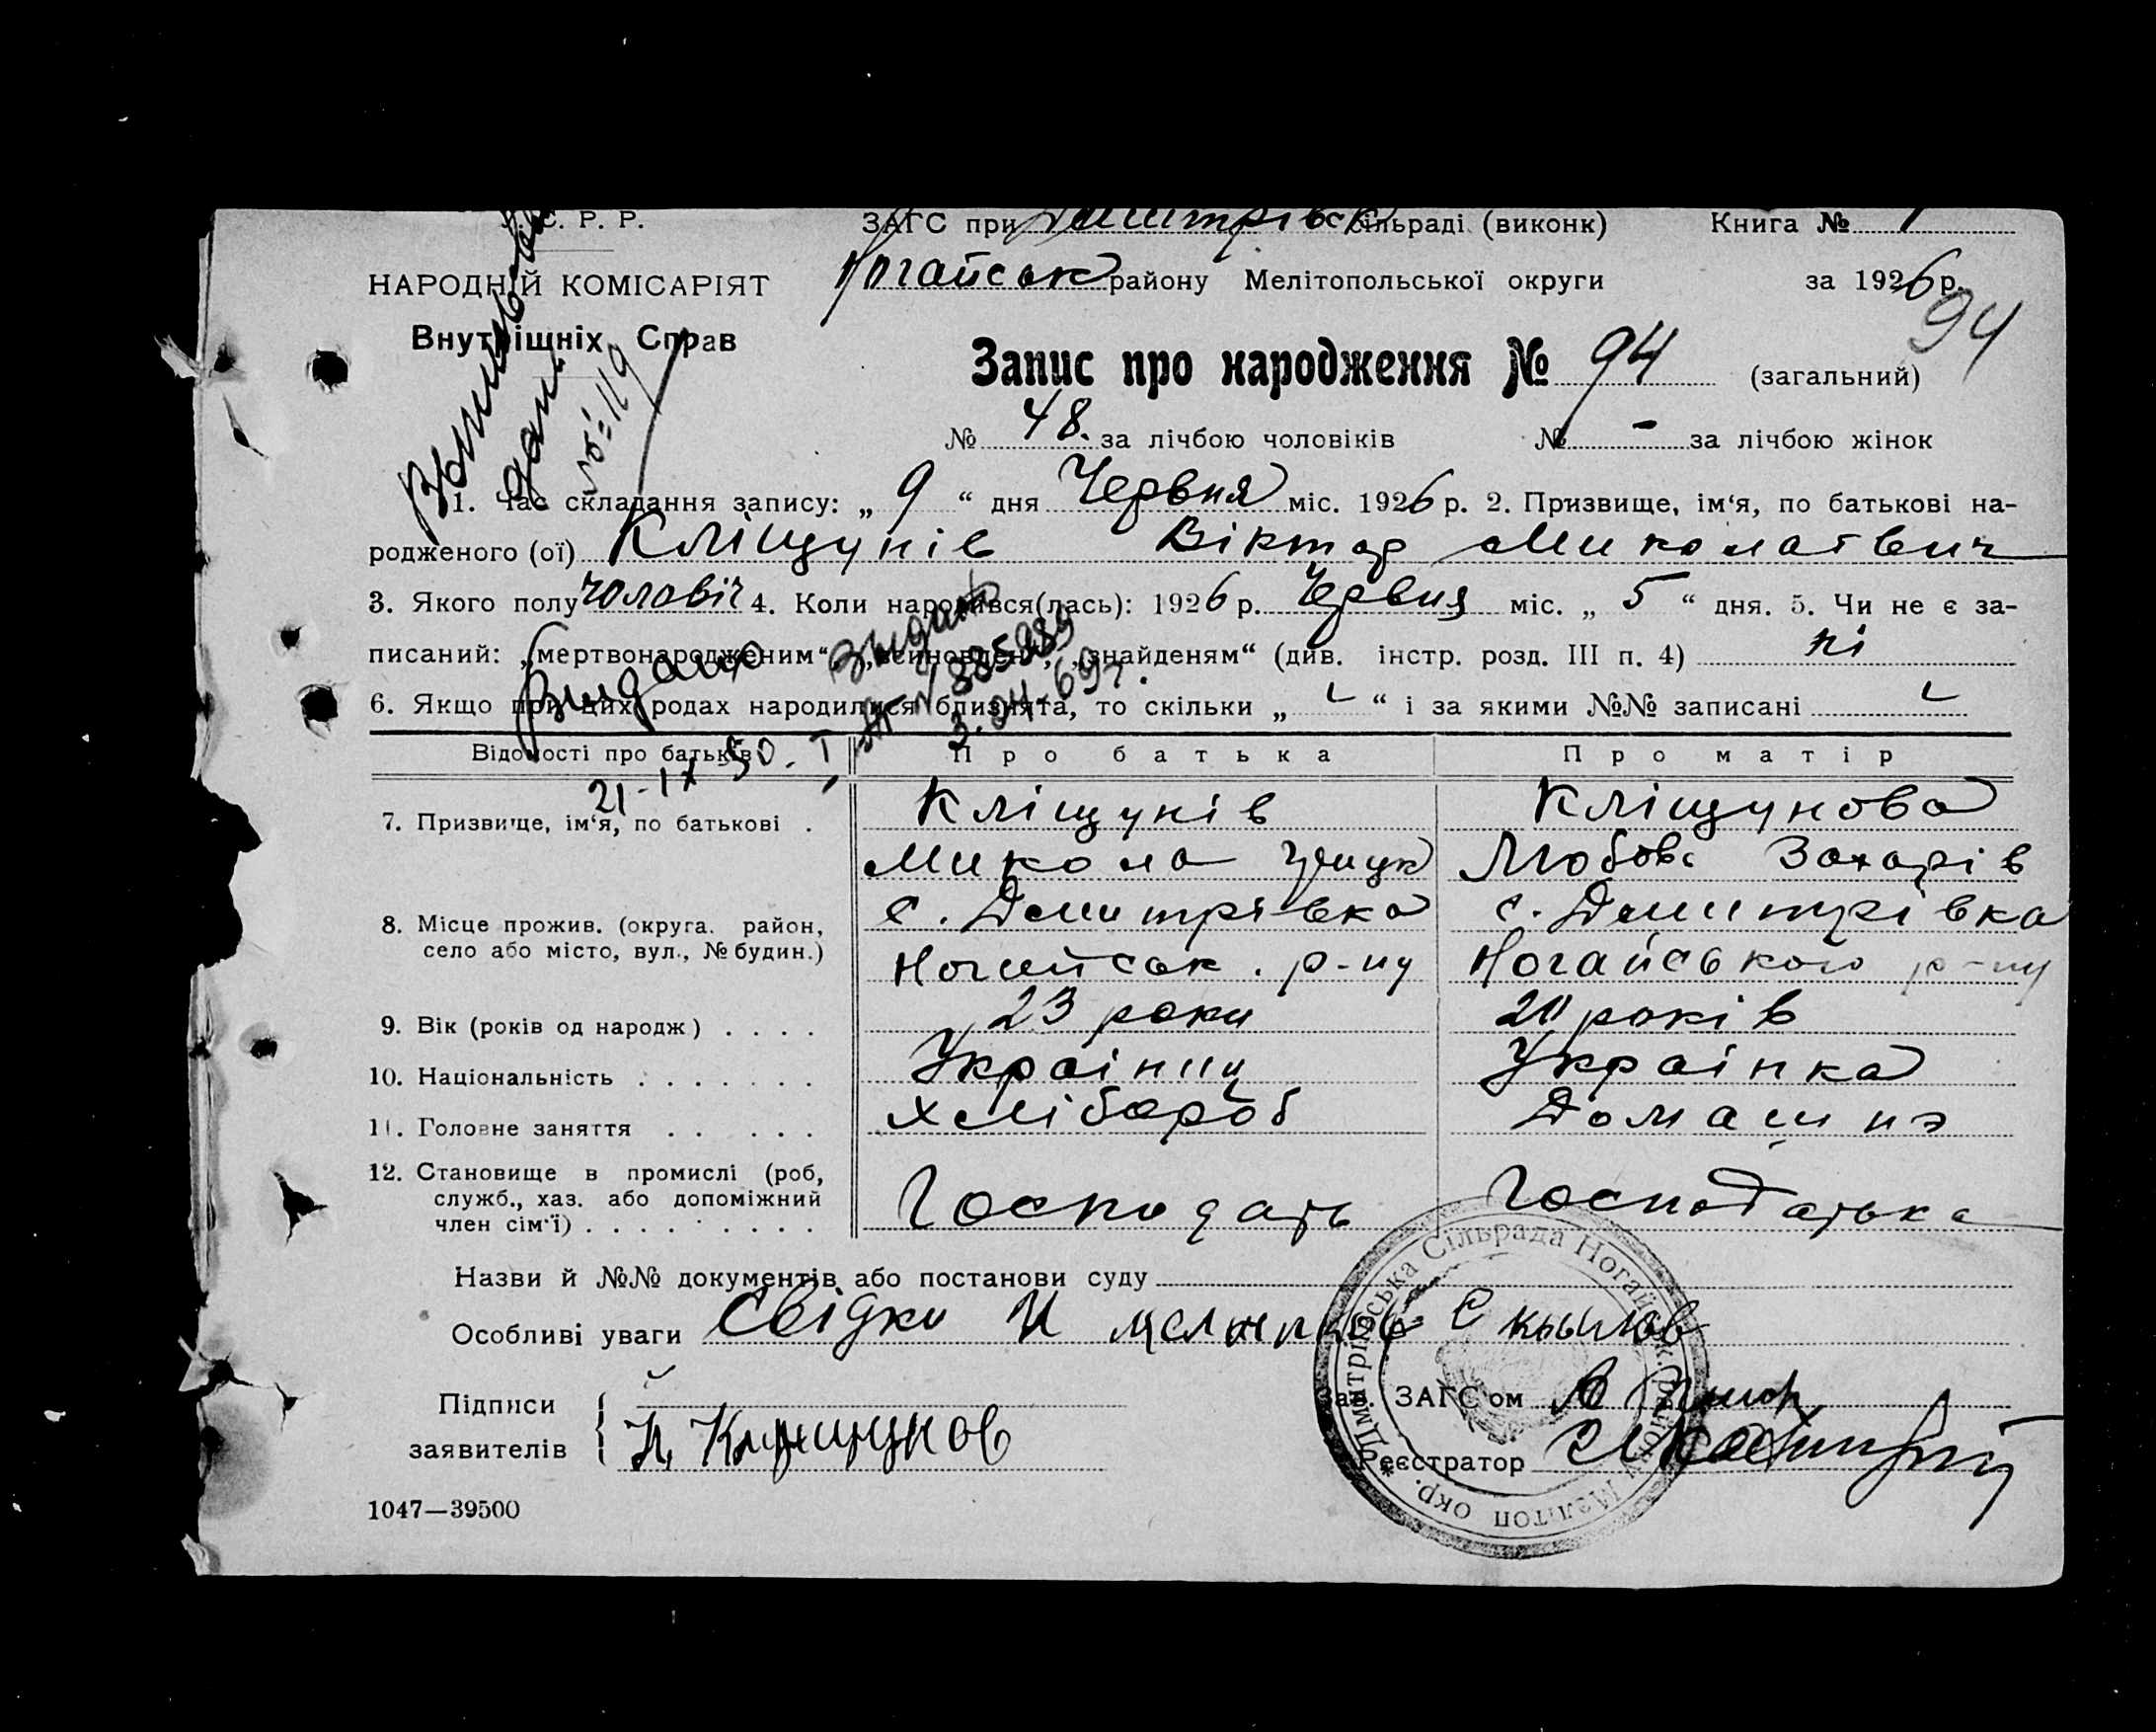 С. Р. Р.
ЗАГС при сільраді (виконк) Книга № 1
НАРОДНІЙ КОМІСАРІЯТ
Ногайськ району Мелітопольської округи за 1926 р.
94
Внутрішніх Справ
Запис про народження № 94 (загальний)
№ 48. за лічбою чоловіків № - за лічбою жінок
1. Час складання запису: „ 9 “ дня Червня міс. 1926 р. 2. Призвище, ім‘я, по батькові на-
родженого (ої) Кліщунів Віктор Миколаєвич
3. Якого полу чоловіч 4. Коли народився(лась): 1926 р. Червня міс. „ 5 “ дня. 5. Чи не є за-
писаний: „мертвонародженим“, „знайденям“ (див. інстр. розд. III п. 4) ні
6. Якщо при цих родах народилися близнята, то скільки „ “ і за якими №№ записані
Видано
21-IX 50.
3.04-69г.
Відомості про батьків Про батька Про матір
7. Призвище, ім‘я, по батькові . Кліщунів Кліщунова
Микола Грицк Любовь Захарів
8. Місце прожив. (округа. район, с. Дмитрівка с. Дмитрівка
село або місто, вул., № будин.) Ногайськ. р-ну Ногайського р-ну
9. Вік (років од народж) . . . . 23 роки 20 років
10. Національність . . . . . . . Українец Українка
11. Головне заняття . . . . . Хлібороб Домашнэ
12. Становище в промислі (роб,
служб., хаз. або допоміжний
член сім‘ї) . . . . . . . . . Господарь Господарька
Назви й №№ документів або постанови суду
Особливі уваги Свідки
Підписи
заявителів
Зав. ЗАГС‘ом
Реєстратор
Дмитрівська Сільрада Ногайськ. район. Мелітоп окр.
1047—39500